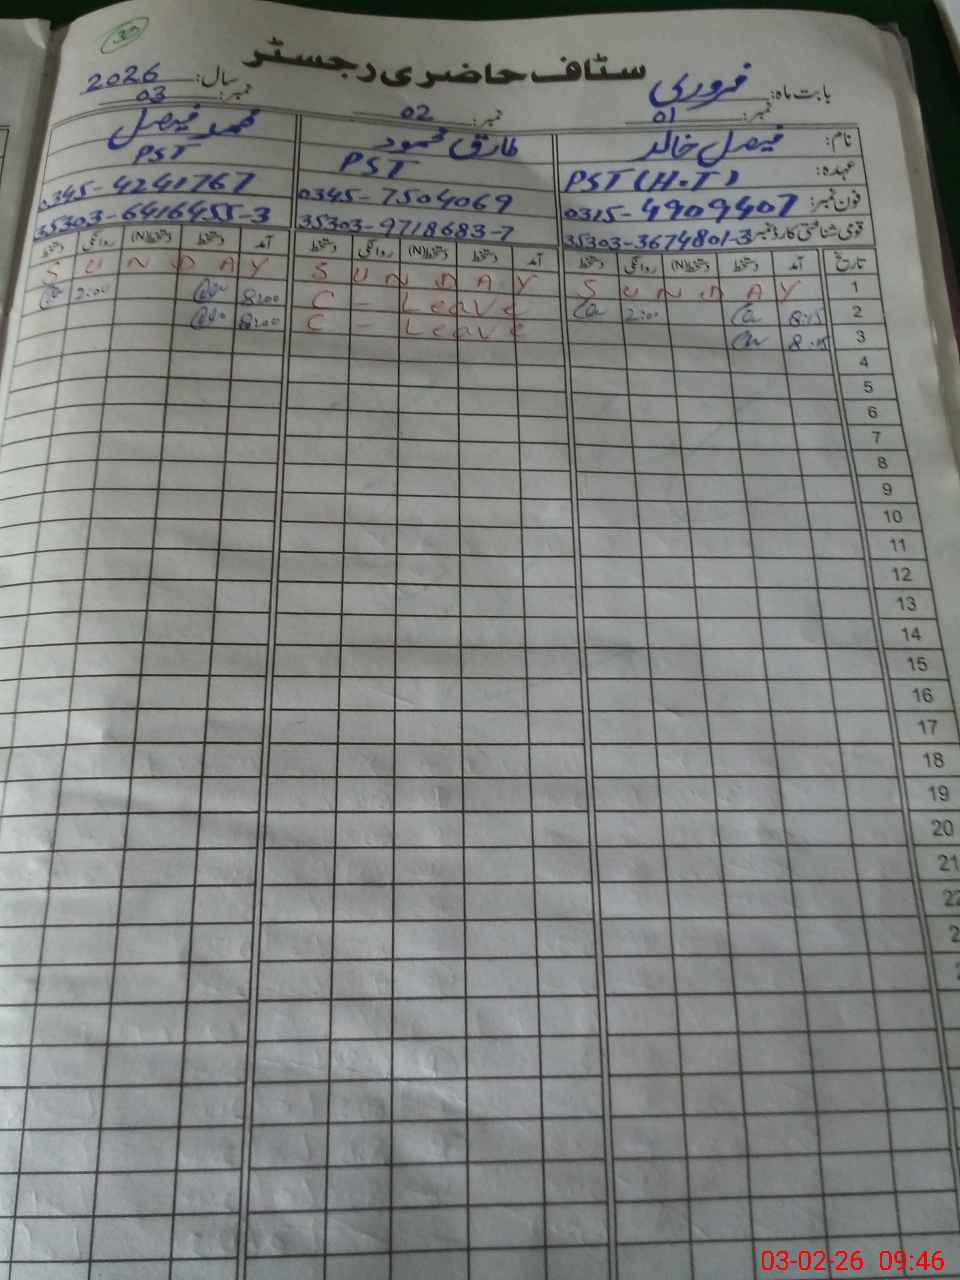 30
سٹاف حاضری رجسٹر
بابت ماہ: فروری سال: 2026
نمبر: 01 نمبر: 02 نمبر: 03
نام: فیصل خالد طارق محمود محمد فیصل
عہدہ: PST (H.T) PST PST
فون نمبر: 0315-4909407 0345-7504069 0345-4241767
قومی شناختی کارڈ نمبر 35303-3674801-3 35303-9718683-7 35303-6416455-3
تاریخ آمد دستخط دستخط(N) روانگی دستخط آمد دستخط دستخط(N) روانگی دستخط آمد دستخط دستخط(N) روانگی دستخط
1 SUNDAY SUNDAY SUNDAY
2 8:15 2:00 C - Leave 8:00 2:00
3 8:15 C - Leave 8:00
4
5
6
7
8
9
10
11
12
13
14
15
16
17
18
19
20
21
22
03-02-26 09:46